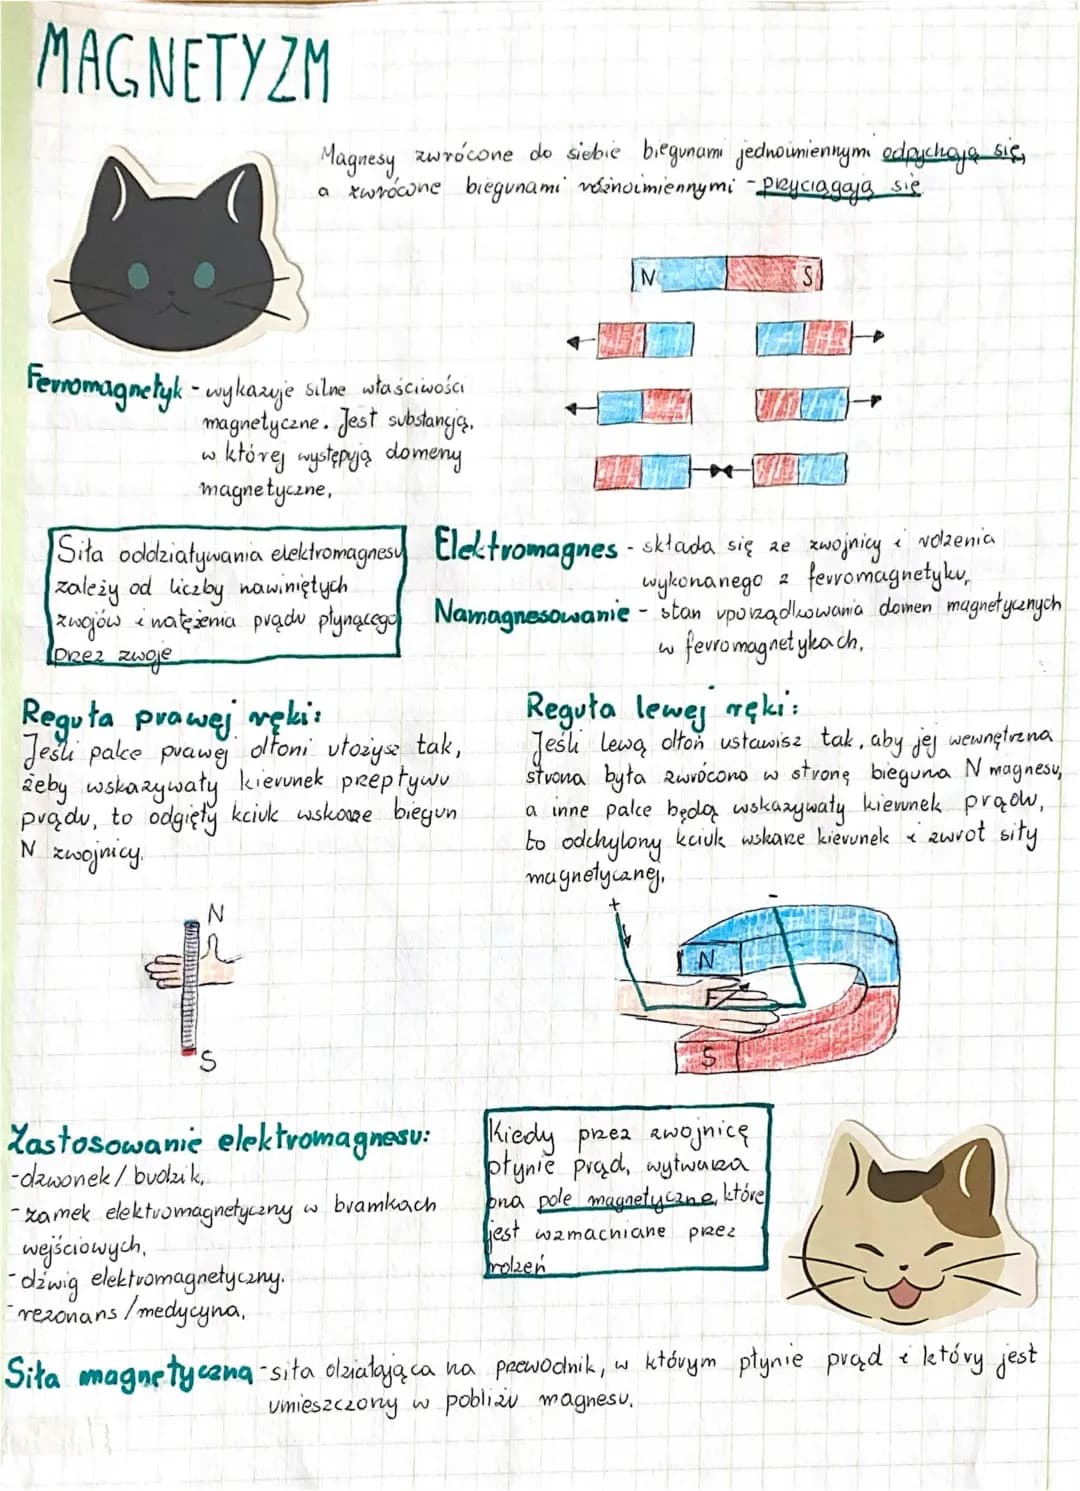 MAGNETYZM
Magnesy zwrócone do siebie biegunami jednoimiennymi odpychają się,
a zwrócone biegunami różnoimiennymi - przyciągają się
N S
Ferromagnetyk - wykazuje silne właściwości
magnetyczne. Jest substancją,
w której występują domeny
magnetyczne.
Siła oddziaływania elektromagnesu
zależy od liczby nawiniętych
zwojów i natężenia prądu płynącego
przez zwoje
Elektromagnes - składa się ze zwojnicy i rdzenia
wykonanego z ferromagnetyku.
Namagnesowanie - stan uporządkowania domen magnetycznych
w ferromagnetykach.
Reguła prawej ręki:
Jeśli palce prawej dłoni ułożysz tak,
żeby wskazywały kierunek przepływu
prądu, to odgięty kciuk wskaże biegun
N zwojnicy.
N
S
Reguła lewej ręki:
Jeśli lewą dłoń ustawisz tak, aby jej wewnętrzna
strona była zwrócona w stronę bieguna N magnesu,
a inne palce będą wskazywały kierunek prądu,
to odchylony kciuk wskaże kierunek i zwrot siły
magnetycznej.
+ -
N
F
S
Zastosowanie elektromagnesu:
- dzwonek / budzik,
- zamek elektromagnetyczny w bramkach
wejściowych,
- dźwig elektromagnetyczny.
- rezonans / medycyna,
Kiedy przez zwojnicę
płynie prąd, wytwarza
ona pole magnetyczne, które
jest wzmacniane przez
rdzeń
Siła magnetyczna - siła działająca na przewodnik, w którym płynie prąd i który jest
umieszczony w pobliżu magnesu.